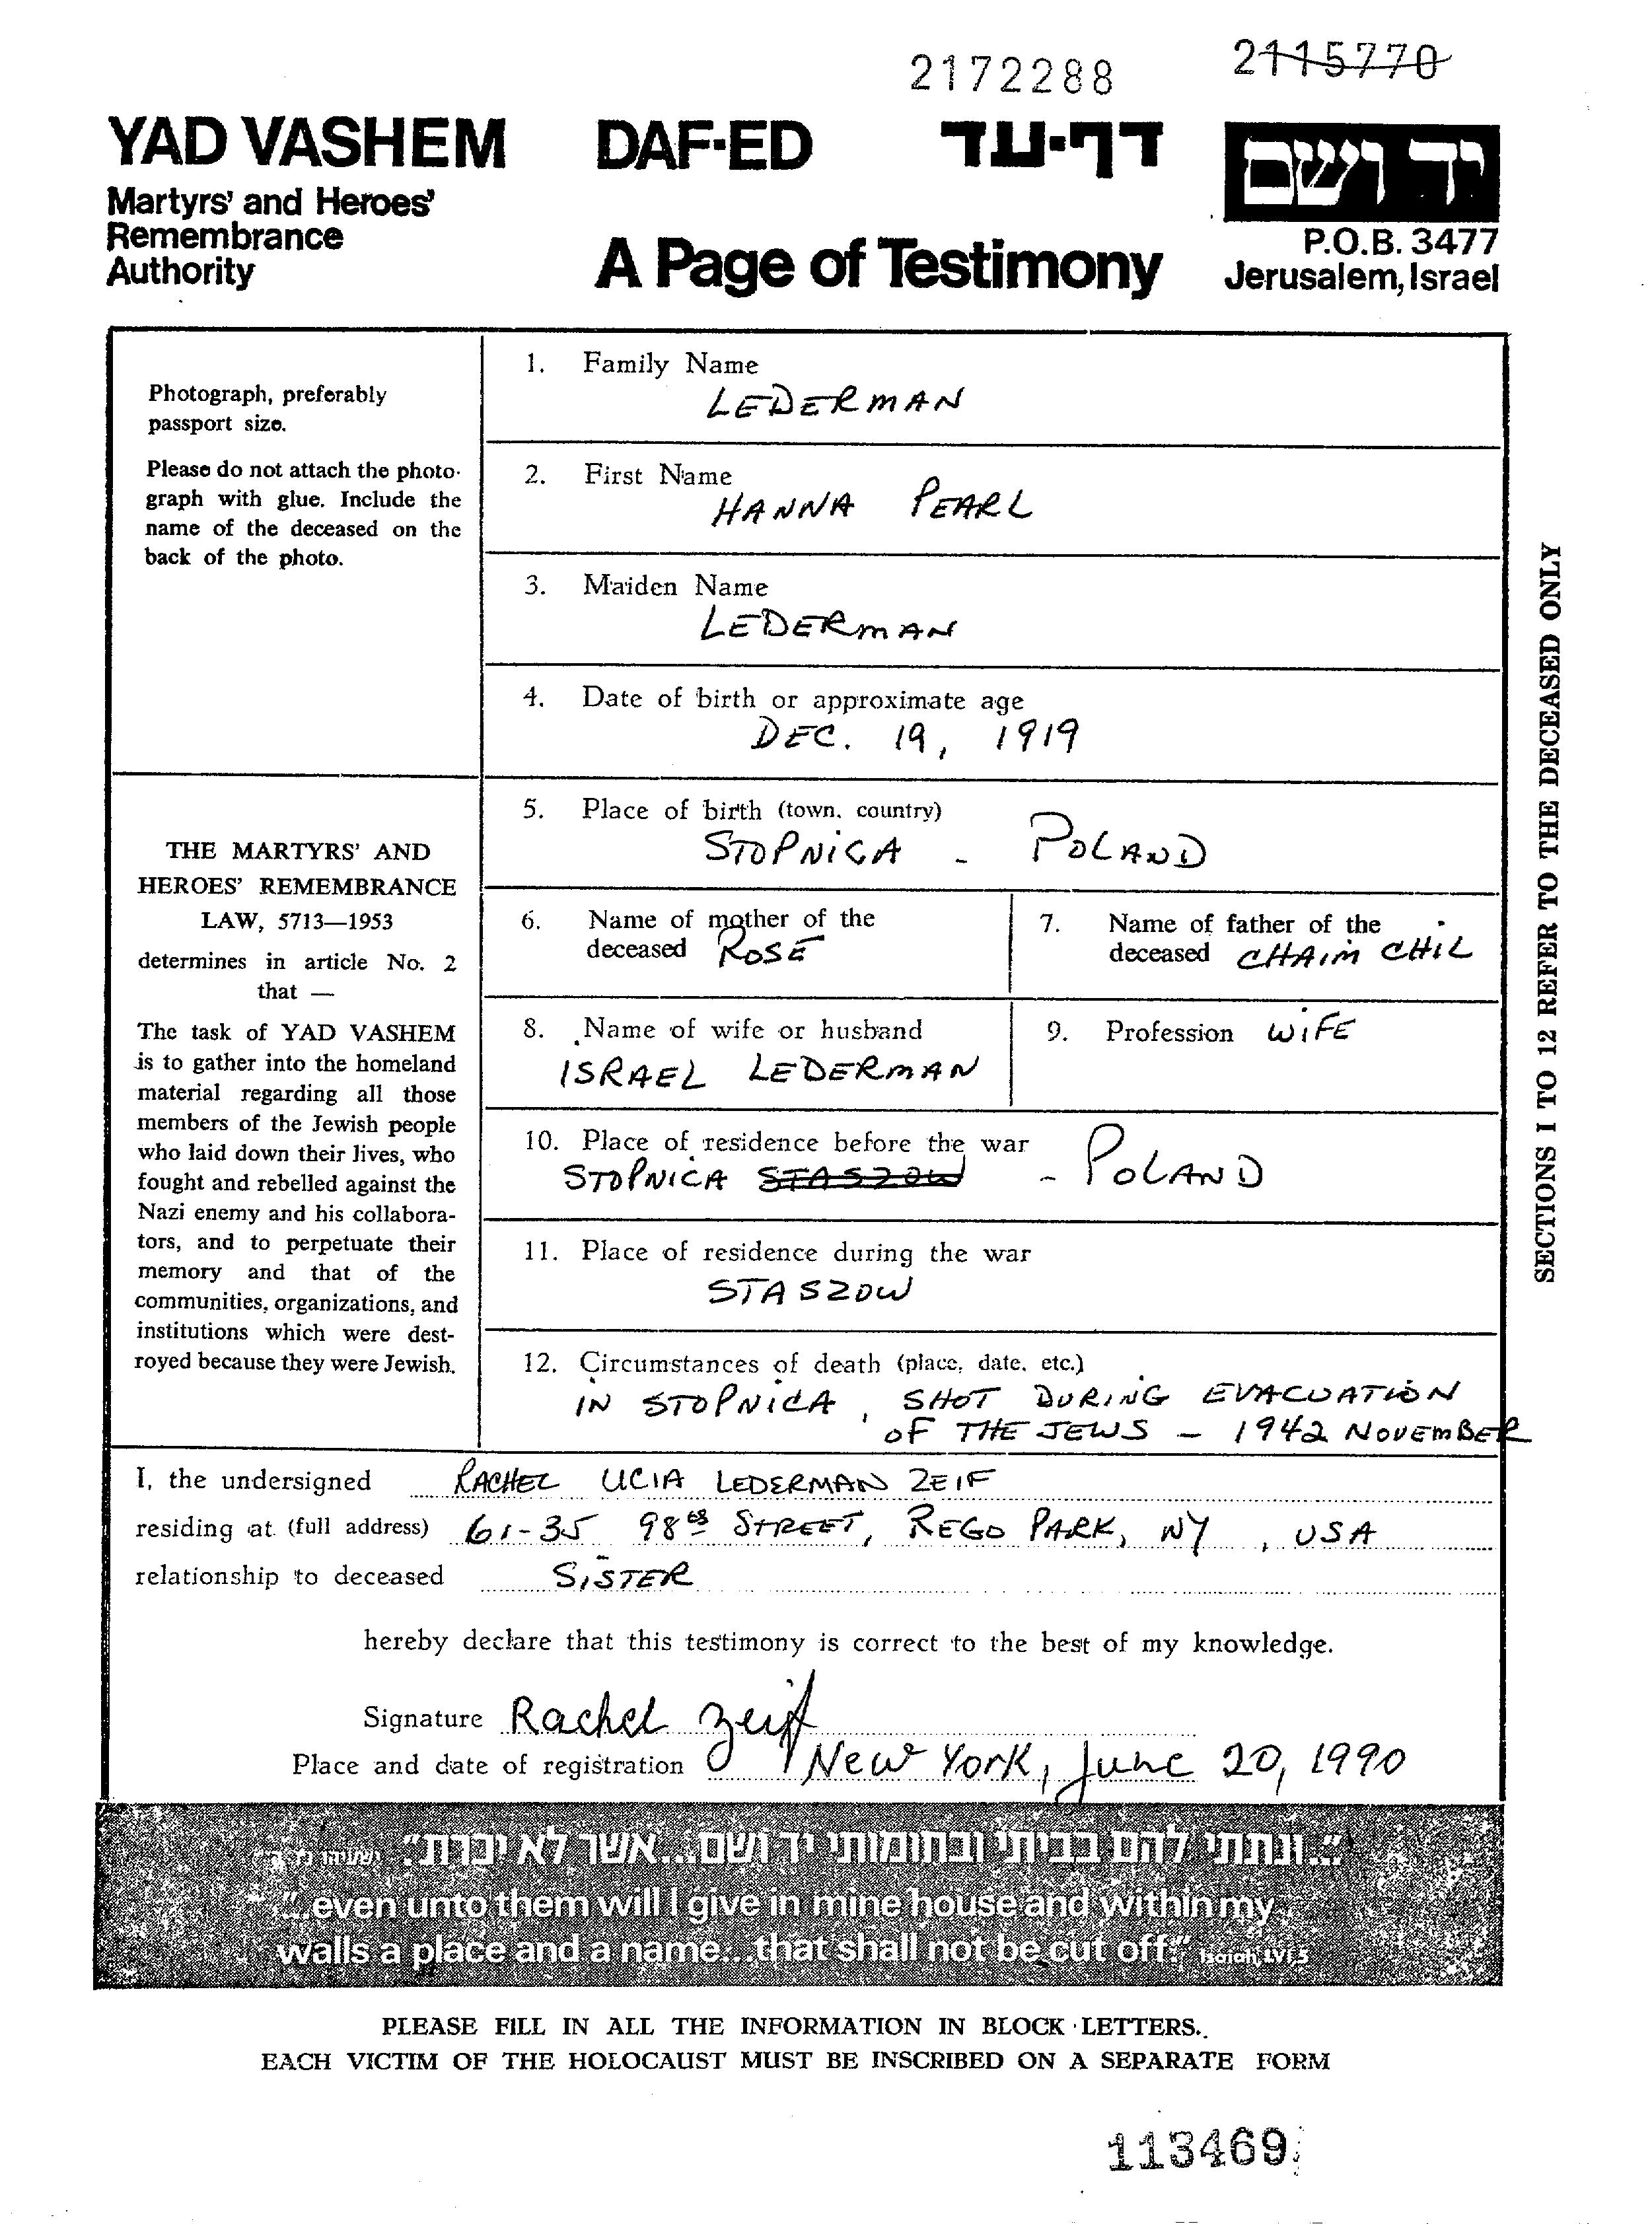 2172288
2115770
YAD VASHEM
Martyrs' and Heroes'
Remembrance
Authority
DAF-ED
דף-עד
A Page of Testimony
יד ושם
P.O.B. 3477
Jerusalem, Israel
Photograph, preferably
passport size.
Please do not attach the photo-
graph with glue. Include the
name of the deceased on the
back of the photo.
THE MARTYRS' AND
HEROES' REMEMBRANCE
LAW, 5713—1953
determines in article No. 2
that —
The task of YAD VASHEM
is to gather into the homeland
material regarding all those
members of the Jewish people
who laid down their lives, who
fought and rebelled against the
Nazi enemy and his collabora-
tors, and to perpetuate their
memory and that of the
communities, organizations, and
institutions which were dest-
royed because they were Jewish.
1. Family Name
LEDERMAN
2. First Name
HANNA PEARL
3. Maiden Name
LEDERMAN
4. Date of birth or approximate age
DEC. 19, 1919
5. Place of birth (town, country)
STOPNICA - POLAND
6. Name of mother of the
deceased ROSE
7. Name of father of the
deceased CHAIM CHIL
8. Name of wife or husband
ISRAEL LEDERMAN
9. Profession WIFE
10. Place of residence before the war
STOPNICA STASZOW - POLAND
11. Place of residence during the war
STASZOW
12. Circumstances of death (place, date, etc.)
IN STOPNICA, SHOT DURING EVACUATION
OF THE JEWS - 1942 NOVEMBER
SECTIONS 1 TO 12 REFER TO THE DECEASED ONLY
I, the undersigned RACHEL UCIA LEDERMAN ZEIF
residing at (full address) 61-35 98 STREET, REGO PARK, NY, USA
relationship to deceased SISTER
hereby declare that this testimony is correct to the best of my knowledge.
Signature Rachel Zeif
Place and date of registration New York, June 20, 1990
"...ונתתי להם בביתי ובחומותי יד ושם...אשר לא יכרת."
"...even unto them will I give in mine house and within my
walls a place and a name...that shall not be cut off." Isaiah, LVI, 5
PLEASE FILL IN ALL THE INFORMATION IN BLOCK LETTERS.
EACH VICTIM OF THE HOLOCAUST MUST BE INSCRIBED ON A SEPARATE FORM
113469